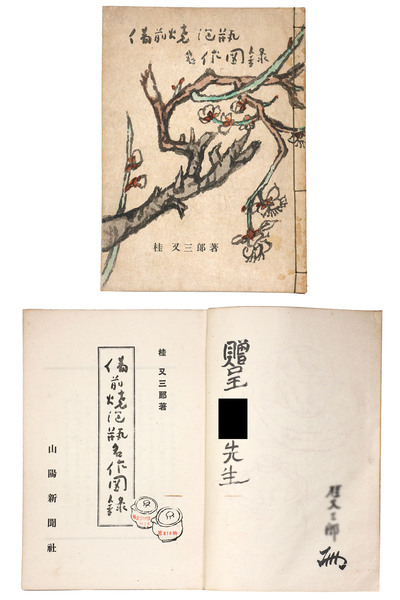 備前焼泡瓶
名作図録
桂 又三郎著
桂 又三郎著
備前焼泡瓶名作図録
山陽新聞社
贈呈
先生
桂又三郎